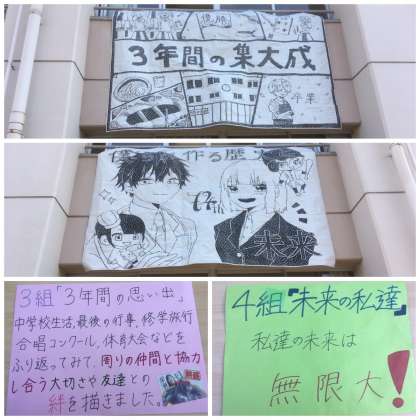 復
3年間の集大成
卒業
作る歴
未来
3組「3年間の思い出」
中学校生活、最後の行事、修学旅行
合唱コンクール、体育大会などを
ふり返ってみて、周りの仲間と協力
し合う大切さや友達との
絆を描きました。
4組『未来の私達』
私達の未来は
無限大!